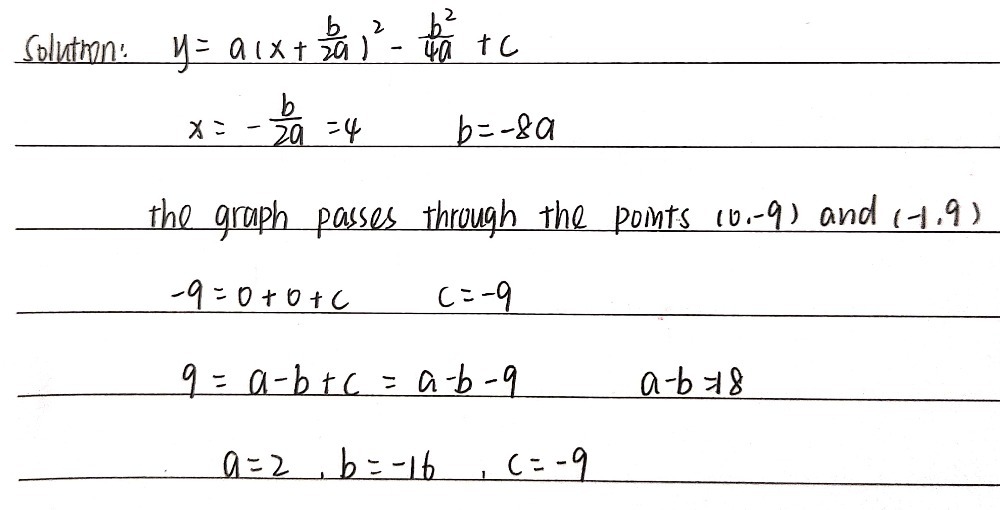 Solution: y = a(x + b/2a)² - b²/4a + c
x = - b/2a = 4 b = -8a
the graph passes through the points (0.-9) and (-1.9)
-9 = 0 + 0 + c c = -9
9 = a - b + c = a - b - 9 a - b = 18
a = 2 , b = -16 , c = -9